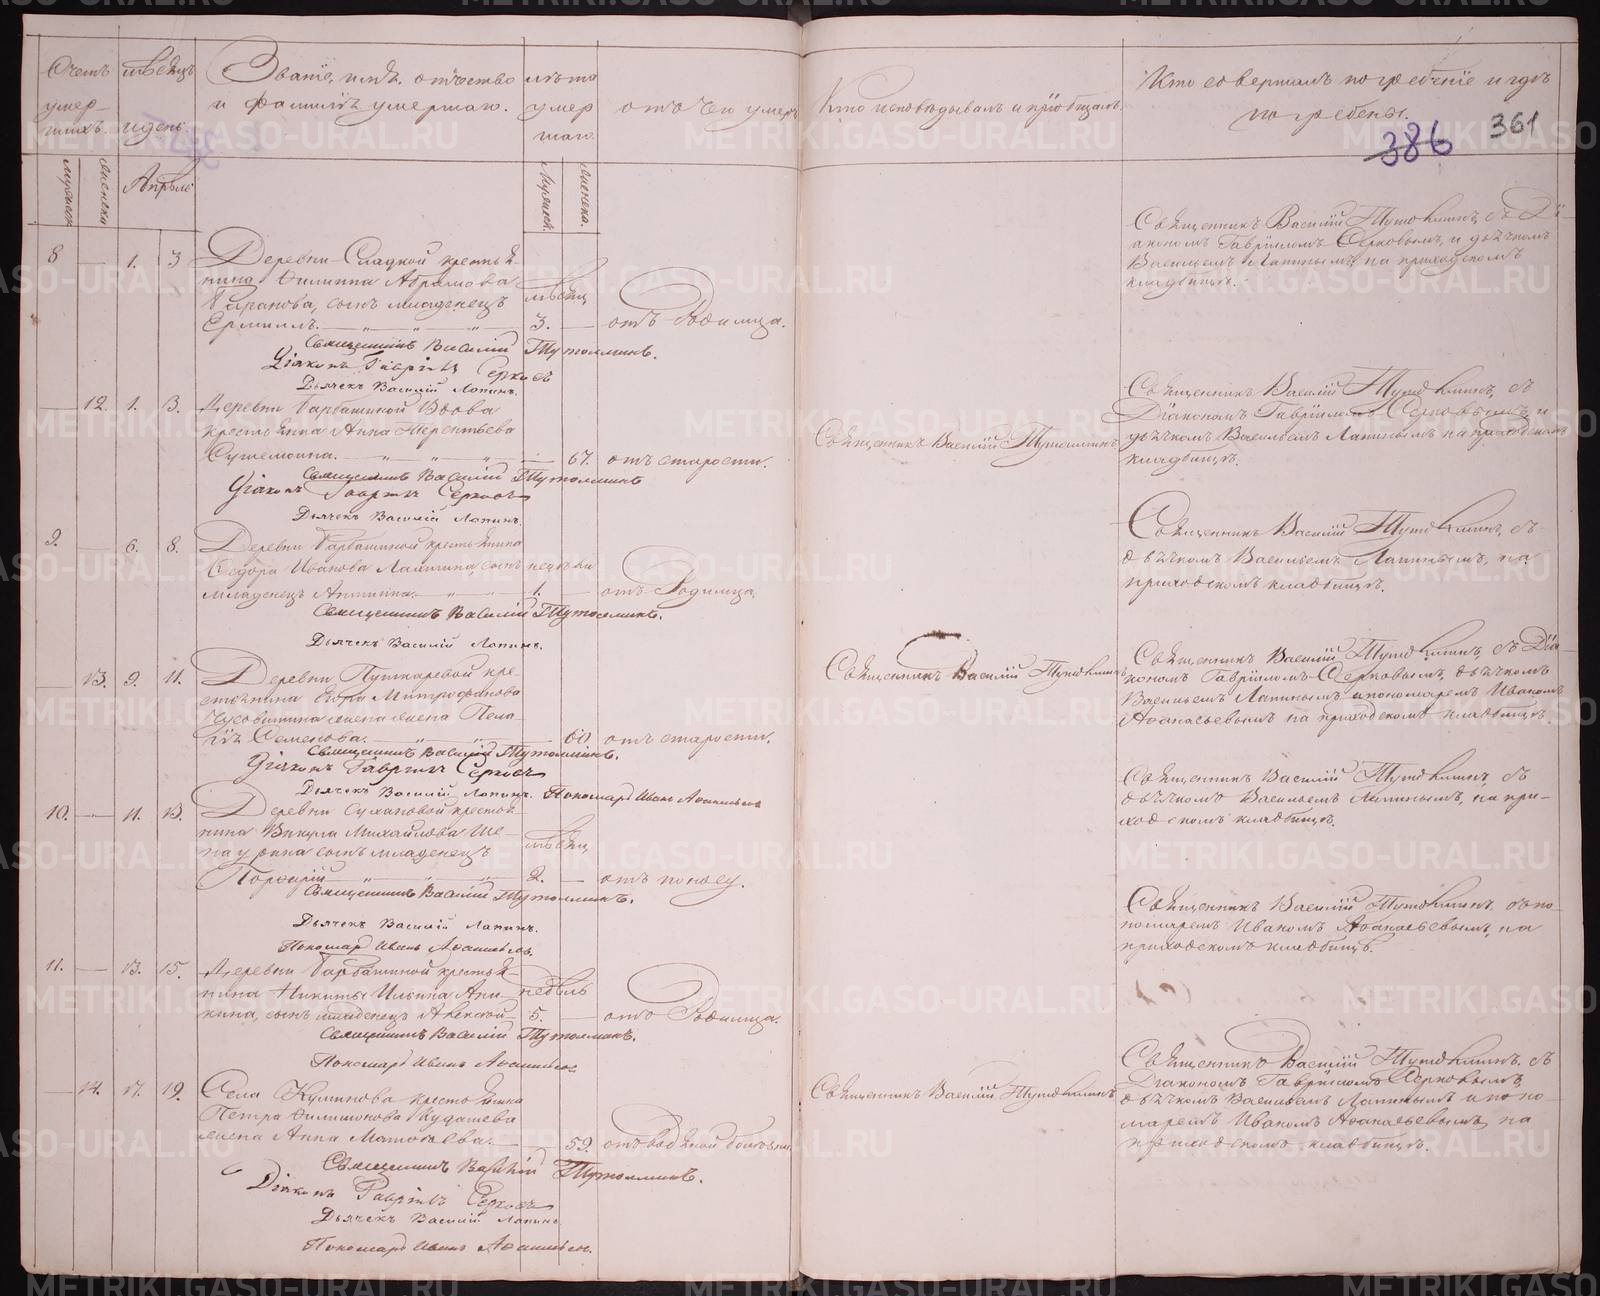 Счетъ умер-шихъ.
мѣсяцъ и день.
Званіе, имя, отчество
и фамилія умершаго.
лѣта умер шаго.
отъ чего умеръ
Кто исповѣдывалъ и пріобщалъ.
Кто совершалъ погребеніе и гдѣ
погребены.
386
361
мужеска
женска
Апрѣль
мужеск.
женска.
8 1. 3
Деревни Сладкой крестья-
нина Филиппа Абрамова
Таранова, сынъ младенецъ мѣсяц
Ермилъ. 3. отъ Родимца.
Священникъ Василій Тутолминъ.
Діаконъ Гавріилъ Серковъ
Дьячекъ Василій Лапинъ.
Священникъ Василій Тутолминъ, съ Ді-
акономъ Гавріиломъ Серковымъ, и дьячкомъ
Васильемъ Лапинымъ, на приходскомъ
кладбищѣ.
12. 1. 3. Деревни Барабашиной вдова
крестьянка Анна Терентьева
67. отъ старости.
Священникъ Василій Тутолминъ
Діаконъ Гавріилъ Серковъ
Дьячекъ Василій Лапинъ.
Священникъ Василій Тутолминъ
Священникъ Василій Тутолминъ, съ
Діакономъ Гавріиломъ Серковымъ, и
дьячкомъ Васильемъ Лапинымъ на приходскомъ
кладбищѣ.
9. 6. 8. Деревни Барабашиной крестьянина
Ѳедора Иванова сынъ недѣли
младенецъ Антипа. 1. отъ Родимца.
Священникъ Василій Тутолминъ.
Дьячекъ Василій Лапинъ.
Священникъ Василій Тутолминъ, съ
дьячкомъ Васильемъ Лапинымъ, на
приходскомъ кладбищѣ.
13. 9. 11. Деревни Пушкаревой кре-
стьянина Егора Митрофанова
жена Пела-
гія Семенова. 60. отъ старости.
Священникъ Василій Тутолминъ.
Діаконъ Гавріилъ Серковъ
Дьячекъ Василій Лапинъ. Пономарь Иванъ Аѳанасьевъ
Священникъ Василій Тутолминъ
Священникъ Василій Тутолминъ, съ Діа-
кономъ Гавріиломъ Серковымъ, дьячкомъ
Васильемъ Лапинымъ и пономаремъ Иваномъ
Аѳанасьевымъ на приходскомъ кладбищѣ
10. 11. 13. Деревни Сухановой крестья-
нина Викула Михайлова Ше-
сынъ младенецъ мѣсяц
Порфирій 2. отъ поносу.
Священникъ Василій Тутолминъ.
Дьячекъ Василій Лапинъ.
Пономарь Иванъ Аѳанасьевъ.
Священникъ Василій Тутолминъ, съ
дьячкомъ Васильемъ Лапинымъ, на при-
ходскомъ кладбищѣ.
11. 13. 15. Деревни Барабашиной крестья-
нина Никиты Ильина Ани- недѣль
кина, сынъ младенецъ Алексѣй 5. отъ Родимца.
Священникъ Василій Тутолминъ.
Пономарь Иванъ Аѳанасьевъ
Священникъ Василій Тутолминъ, съ по-
номаремъ Иваномъ Аѳанасьевымъ, на
приходскомъ кладбищѣ.
14. 17. 19. Села крестьянина
Петра Филимонова Кудашева
жена Анна Матвѣева. 59. отъ водяной болѣзни.
Священникъ Василій Тутолминъ.
Діаконъ Гавріилъ Серковъ
Дьячекъ Василій Лапинъ
Пономарь Иванъ Аѳанасьевъ.
Священникъ Василій Тутолминъ
Священникъ Василій Тутолминъ, съ
Діакономъ Гавріиломъ Серковымъ,
дьячкомъ Васильемъ Лапинымъ и поно-
маремъ Иваномъ Аѳанасьевымъ, на
приходскомъ кладбищѣ.
METRIKI.GASO-URAL.RU